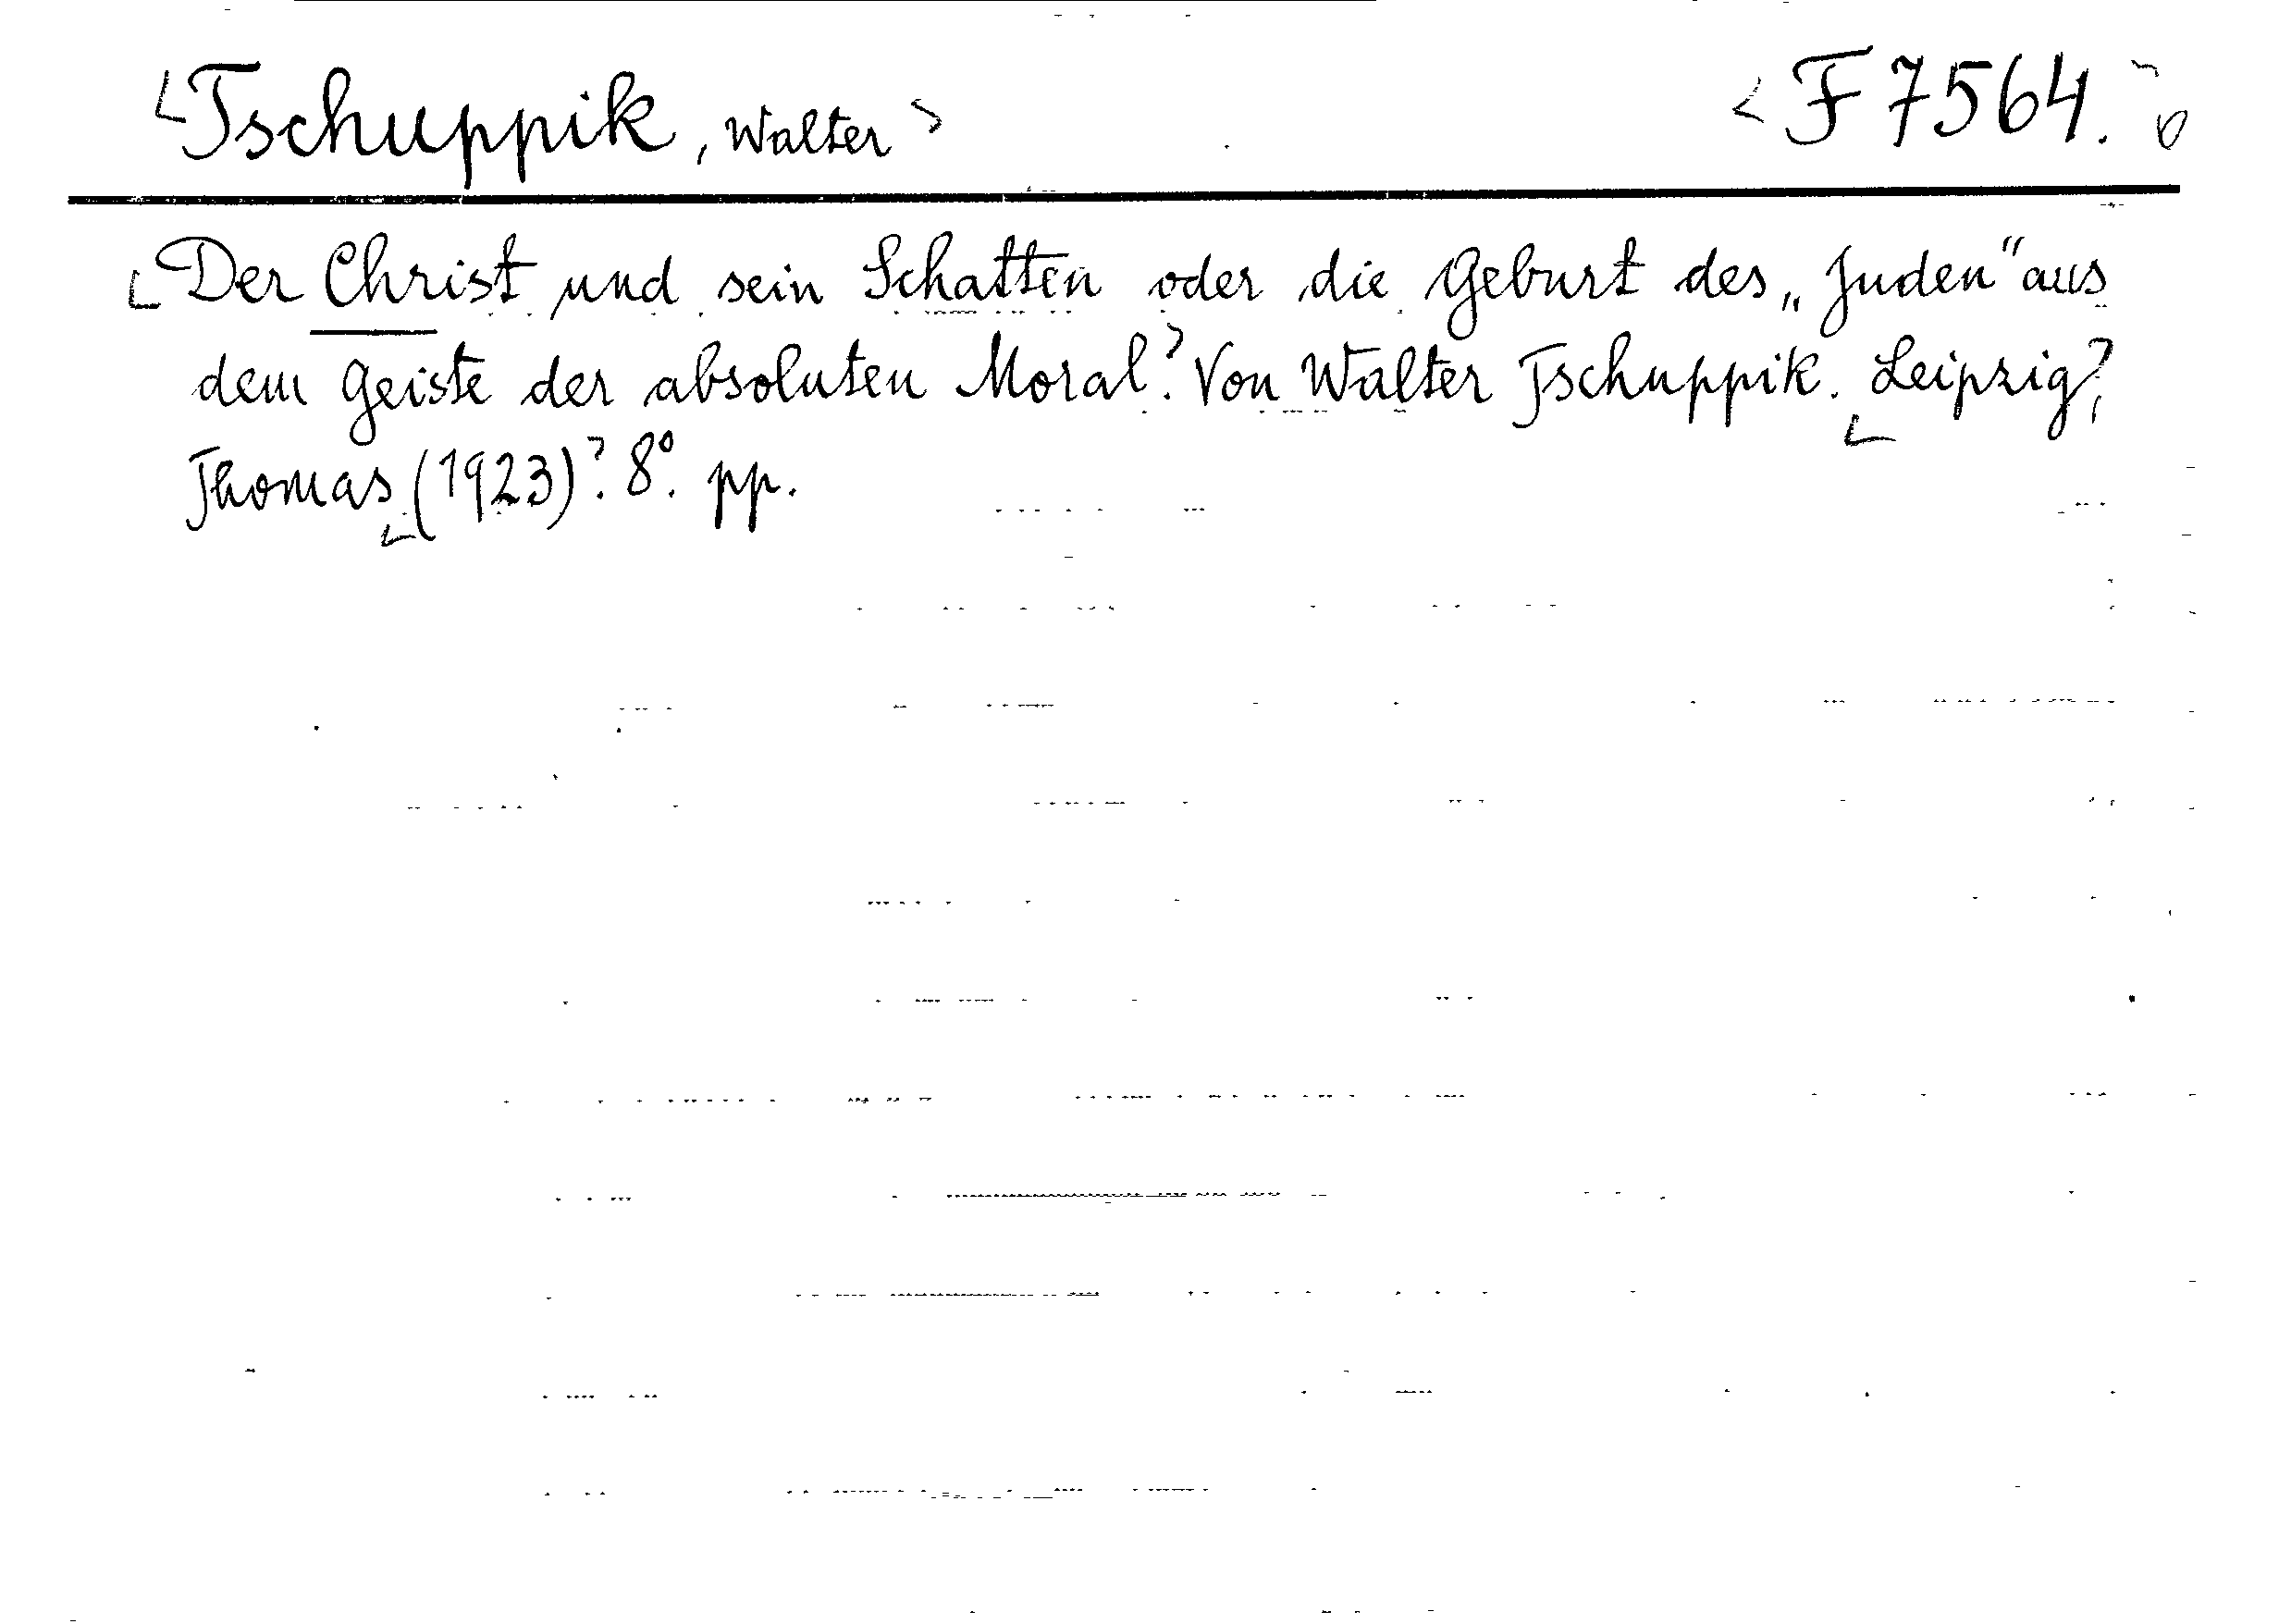 Tschuppik, Walter F 7564.
Der Christ und sein Schatten oder die Geburt des „Juden“ aus
dem Geiste der absoluten Moral. Von Walter Tschuppik. Leipzig,
Thomas (1923). 8°. pp.